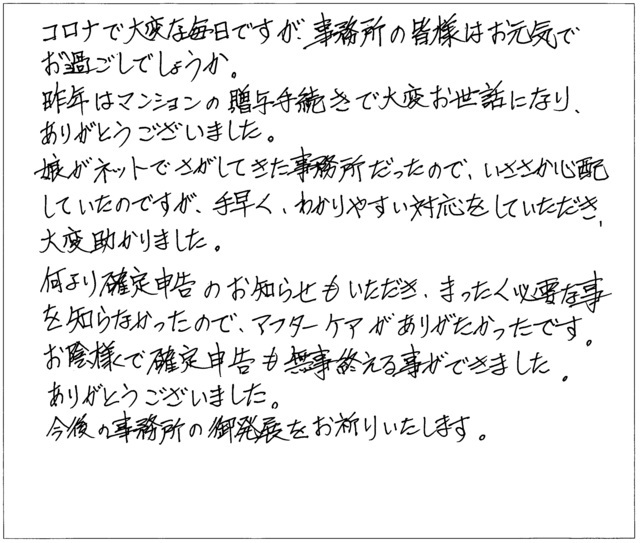 コロナで大変な毎日ですが、事務所の皆様はお元気で
お過ごしでしょうか。
昨年はマンションの贈与手続きで大変お世話になり、
ありがとうございました。
娘がネットでさがしてきた事務所だったので、いささか心配
していたのですが、手早く、わかりやすい対応をしていただき、
大変助かりました。
何より確定申告のお知らせもいただき、まったく必要な事
を知らなかったので、アフターケアがありがたかったです。
お陰様で確定申告も無事終える事ができました。
ありがとうございました。
今後の事務所の御発展をお祈りいたします。